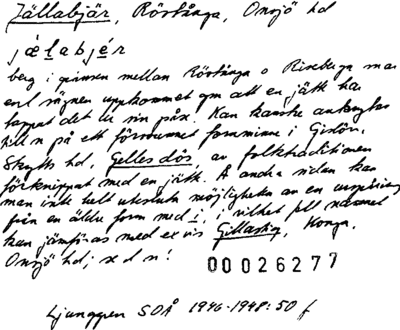 Jällabjär, Röstånga, Onsjö hd
jælabjér
berg i gränsen mellan Röstånga o Riseberga sna
enl sägnen uppkommet gm att en jätte har
tappat det ur sin påse. Kan kanske anknytas
till n på ett försvunnet fornminne i Gislöv,
Skytts hd, Gelles dös, av folktraditionen
förknippat med en jätte. Å andra sidan kan
man inte helt utesluta möjligheten av en utveckling
från en äldre form med i, i vilket fall namnet
kan jämföras med ex vis Gillastig, Konga,
Onsjö hd; se d n!
00026277
Ljunggren SOÅ 1946-1948:50 f